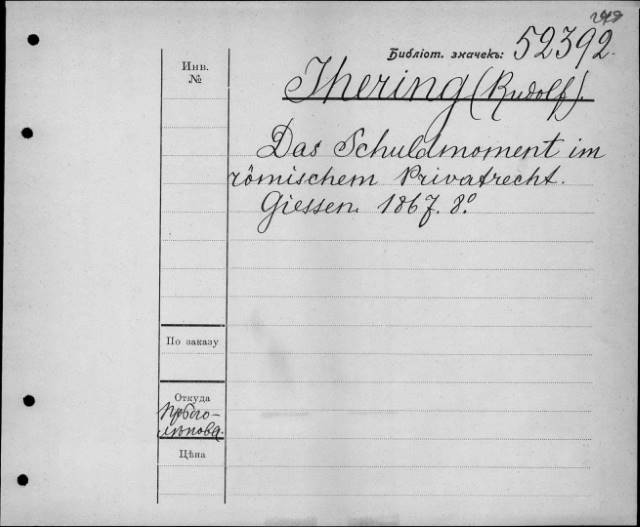 Библіот. значекъ: 52392.
Инв.
№
Jhering (Rudolf).
Das Schuldmoment im
römischem Privatrecht.
Giessen. 1867. 8º
По заказу
Откуда
Цѣна